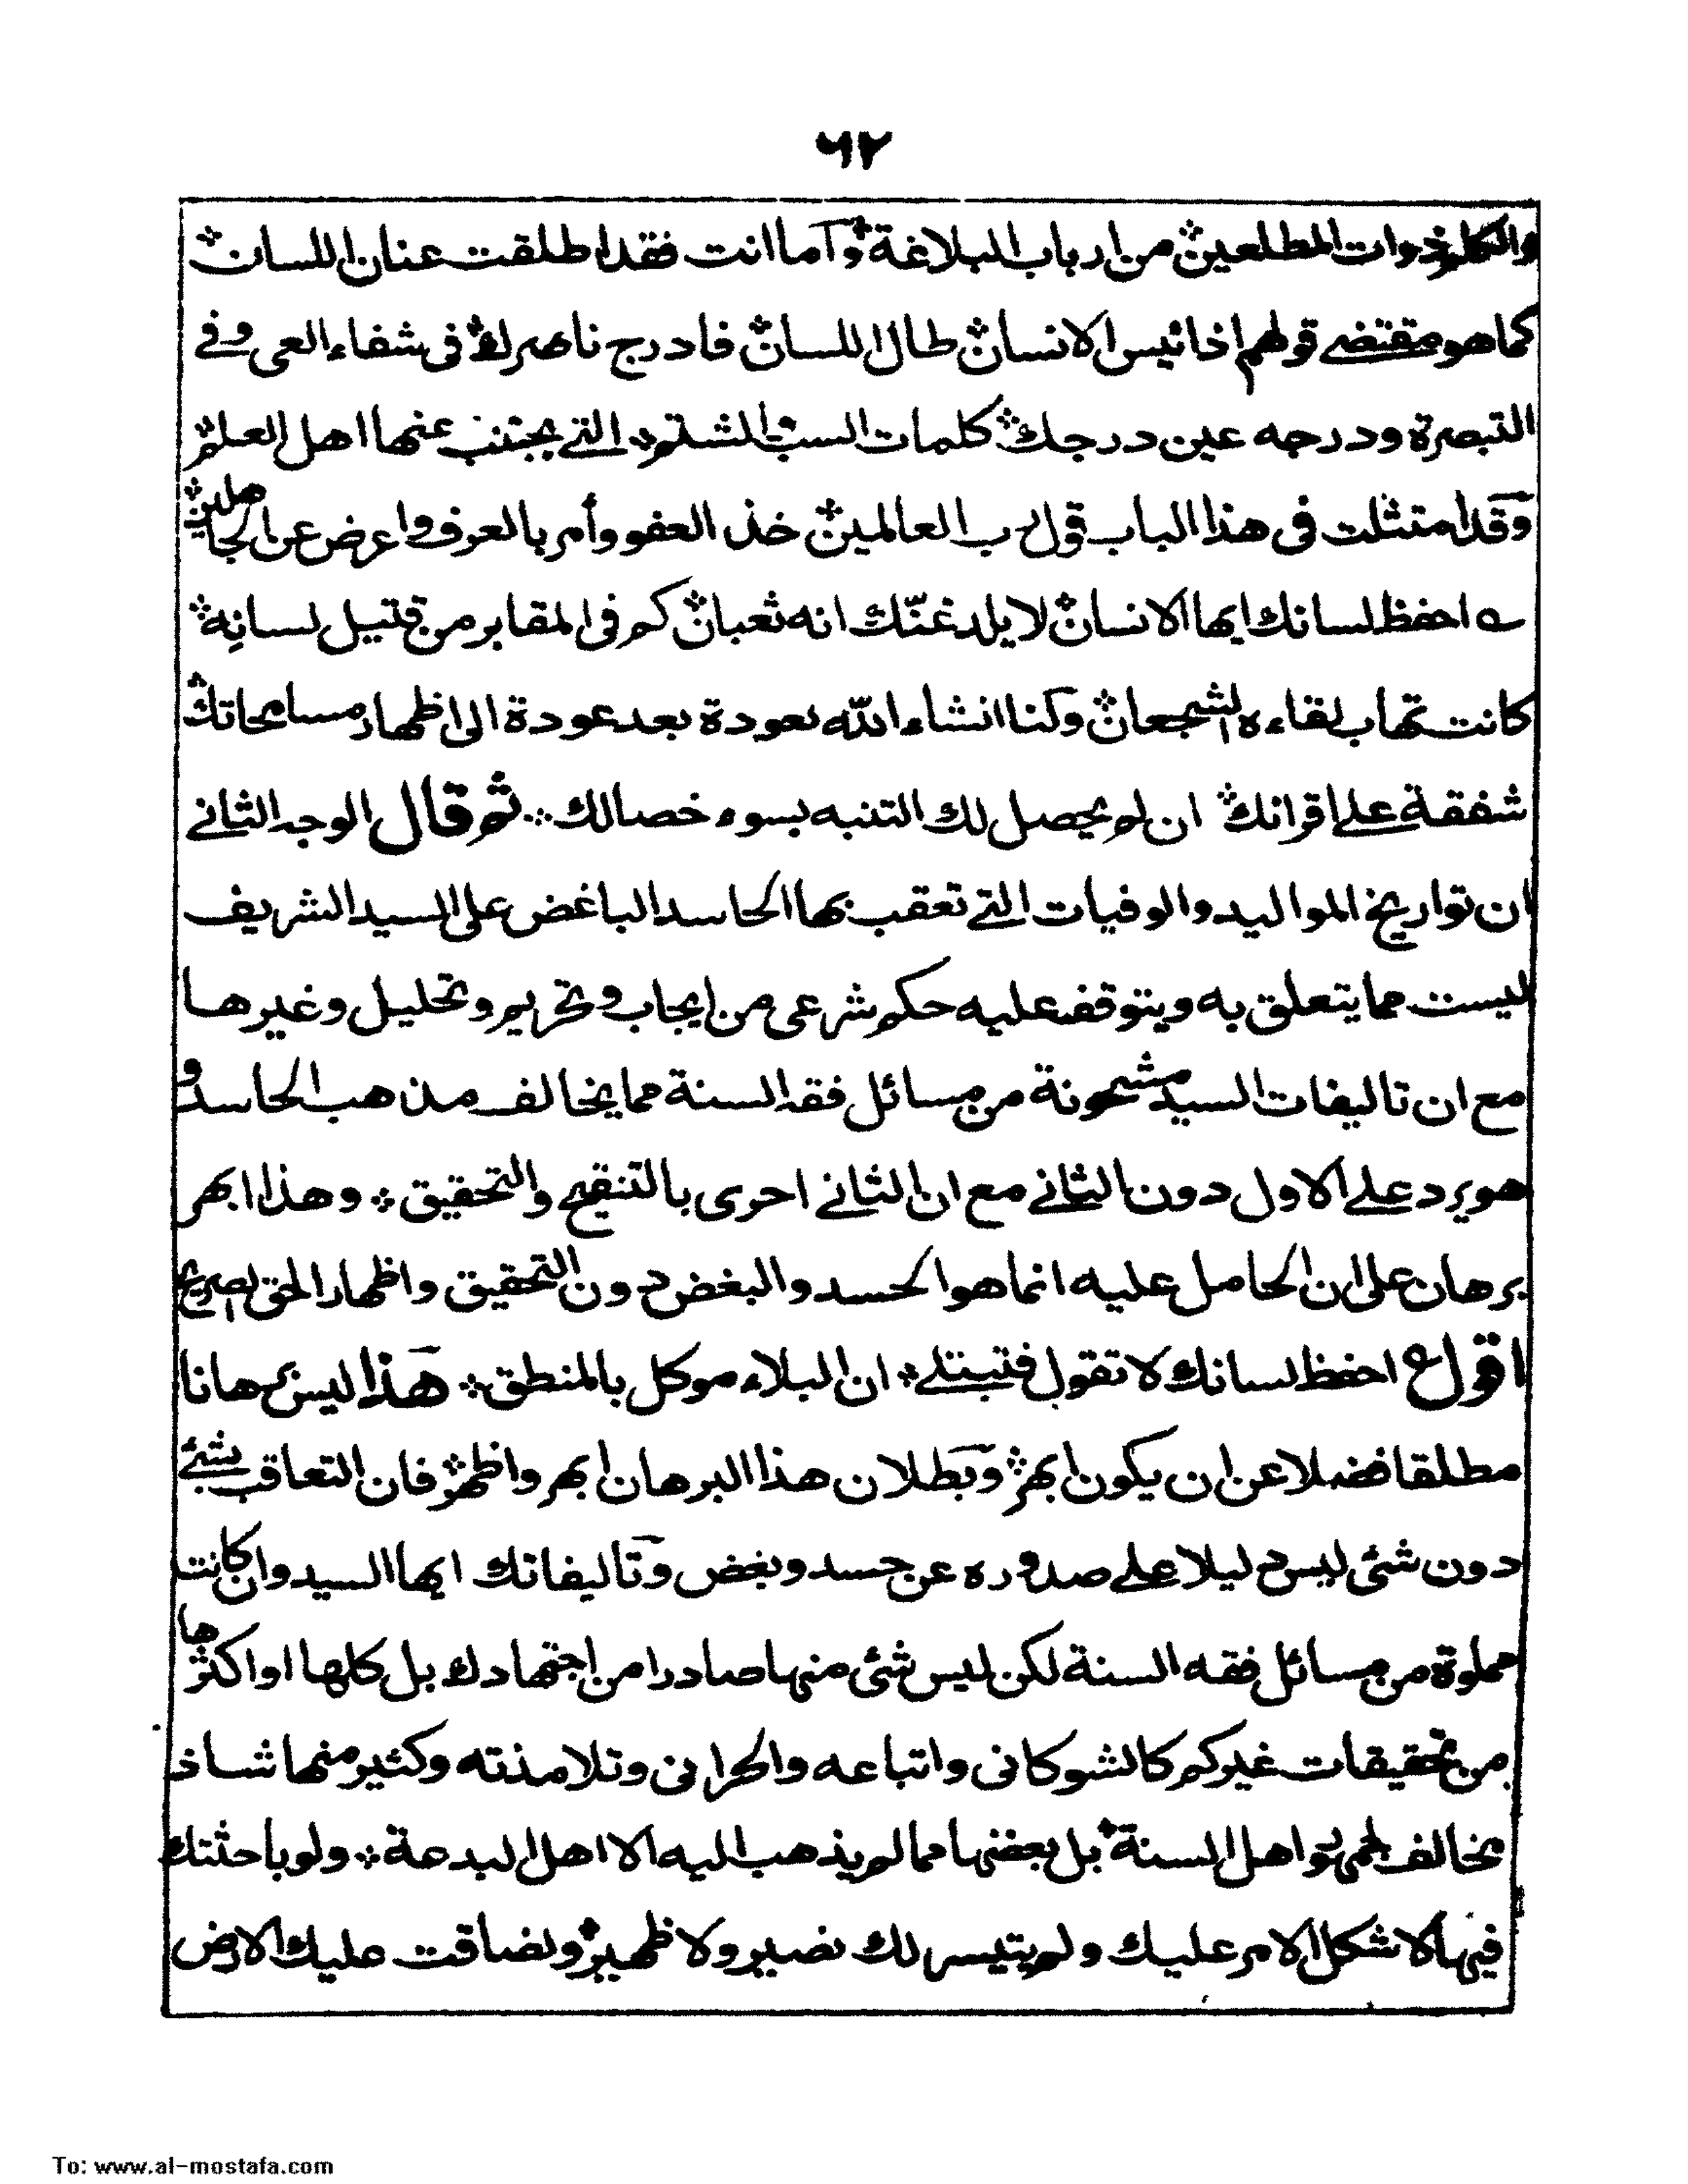 ٦٢
المطلعين ؞ من ارباب البلاغة ؞ وآما انت فقد اطلقت عنان اللسان ؞
كما هو مقتضے قولهم اذا ئيس الانسان ؞ طال اللسان ؞ فادرج ناصرك ؞ فى شفاء العى وفے
التبصرة ودرجه عين درجك ؞ كلمات السب والشتم ؞ التے يجتنب عنها اهل العلم ؞
وقد امتثلت فى هذا الباب قول رب العالمين ؞ خذ العفو وأمر بالعرف واعرض عن الجاهلين ؞
ے احفظ لسانك ايها الانسان ؞ لا يلدغنّك انه ثعبان ؞ كم فى المقابر من قتيل لسانِه ؞
كانت تهاب لقاءه الشجعان ؞ وكنا انشاء الله نعودة بعد عودة الى اظهار مسامحاتك ؞
شفقة علے اقرانك ؞ ان لم يحصل لك التنبه بسوء خصالك ؞ ثم قال الوجه الثانے
ان تواريخ المواليد والوفيات التے تعقب بها الحاسد الباغض على السيد الشريف
ليست مما يتعلق به ويتوقف عليه حكم شرعى من ايجاب وتحريم وتحليل وغيرها
مع ان تاليفات السيد مشحونة من مسائل فقه السنة مما يخالف مذهب الحاسد و
هو يرد علے الاول دون الثانے مع ان الثانے احرى بالتنقيح والتحقيق ؞ وهذا ابهر
برهان على ان الحامل عليه انما هو الحسد والبغض دون التحقيق واظهار الحق الصريح
اقول احفظ لسانك لا تقول فتبتلے ؞ ان البلاء موكل بالمنطق ؞ هذا ليس برهانا
مطلقا فضلا عن ان يكون ابهر ؞ وبطلان هذا البرهان ابهر واظهر ؞ فان التعاقب بشئے
دون شئى ليس دليلا علے صدوره عن حسد وبغض وتاليفاتك ايها السيد وان كانت
مملوة من مسائل فقه السنة لكن ليس شئى منها صادرا من اجتهادك بل كلها او اكثرها
من تحقيقات غيركم كالشوكانى واتباعه والحرانى وتلامذته وكثير منها شاذ
يخالف جمهور اهل السنة ؞ بل بعضها مما لم يذهب اليه الا اهل البدعة ؞ ولو باحثتك
فيها لاشكل الامر عليك ولم يتيسر لك نصير ولا ظهير ؞ ولضاقت عليك الارض
To: www.al-mostafa.com